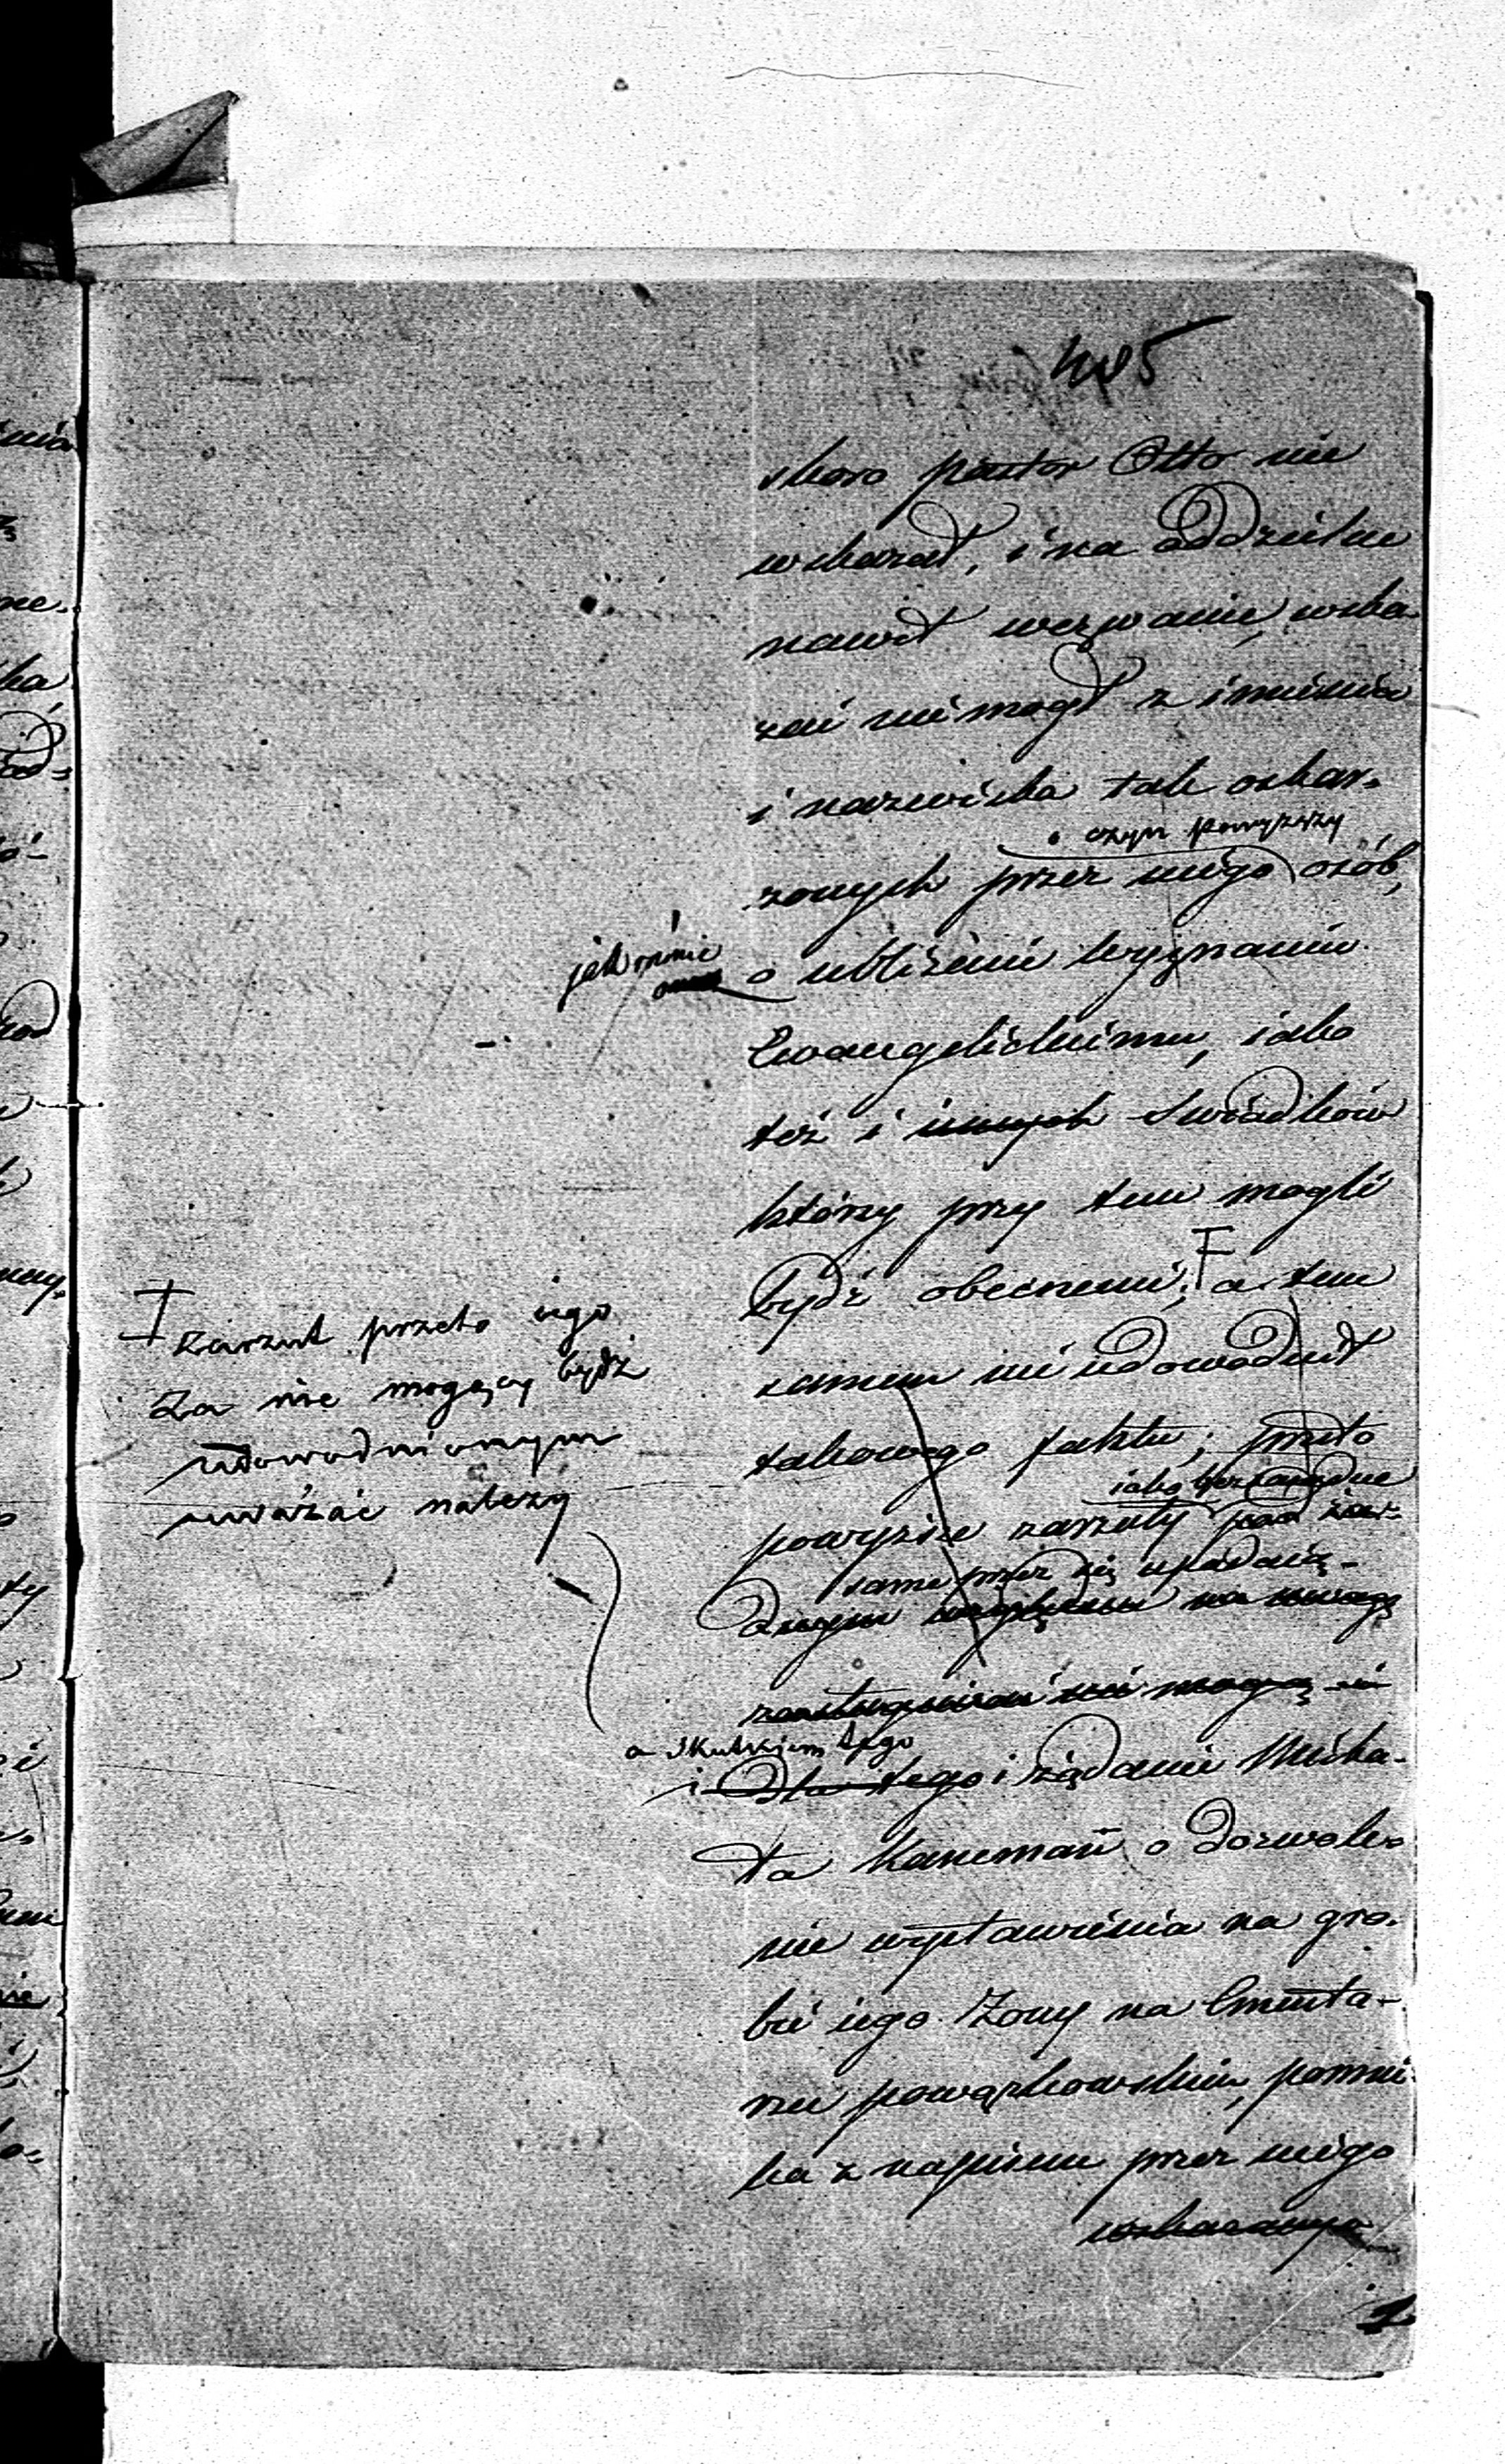 485
skoro pastor Otto nie
wskazał, i na oddzielne
nawet wezwanie, wska-
zać nie mogł z imienia
i nazwiska tak oskar-
o czym powyższy
żonych przez niego osób,
jak mnie
o ubliżenie wyznaniu
Ewangelickiemu, iako
też i innych Swiadków
którzy przy tem mogli
bydź obecnemi; a tem
samem nie udowodnił
takowego faktu; przeto
iako bezzasadne
powyższe zarzuty pod żad-
same przez się upadaią -
dnym względem na uwagę
zasługiwać nie mogą
a skutkiem tego
i dla tego i żądanie Micha-
ła Kaneman o dozwole-
nie wystawienia na gro-
bie iego Zony na Cmenta-
rzu powązkowskim, pomni-
ka z napisem przez niego
wskazanym
zarzut przeto iego
za nie mogący bydź
udowodnionym
uważać należy